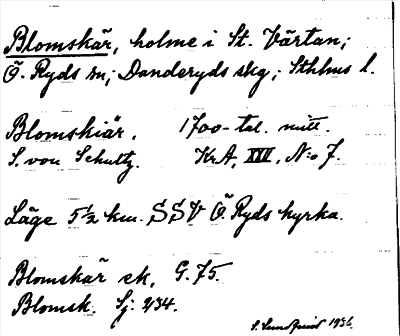 Blomskär, holme i St. Värtan;
Ö. Ryds sn; Danderyds skg; Sthlms l.
Blomskiär. 1700-tal. mitt.
S. von Schultz. KrA, XXII, N:o 7.
Läge 5½ km. SSV Ö Ryds kyrka.
Blomskär ek, G. 75.
Blomsk. Sj: 234.
S. Lundquist 1936.